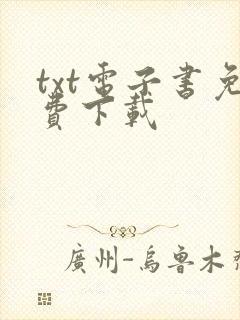 txt電子書免
費下載
廣州-烏魯木齊